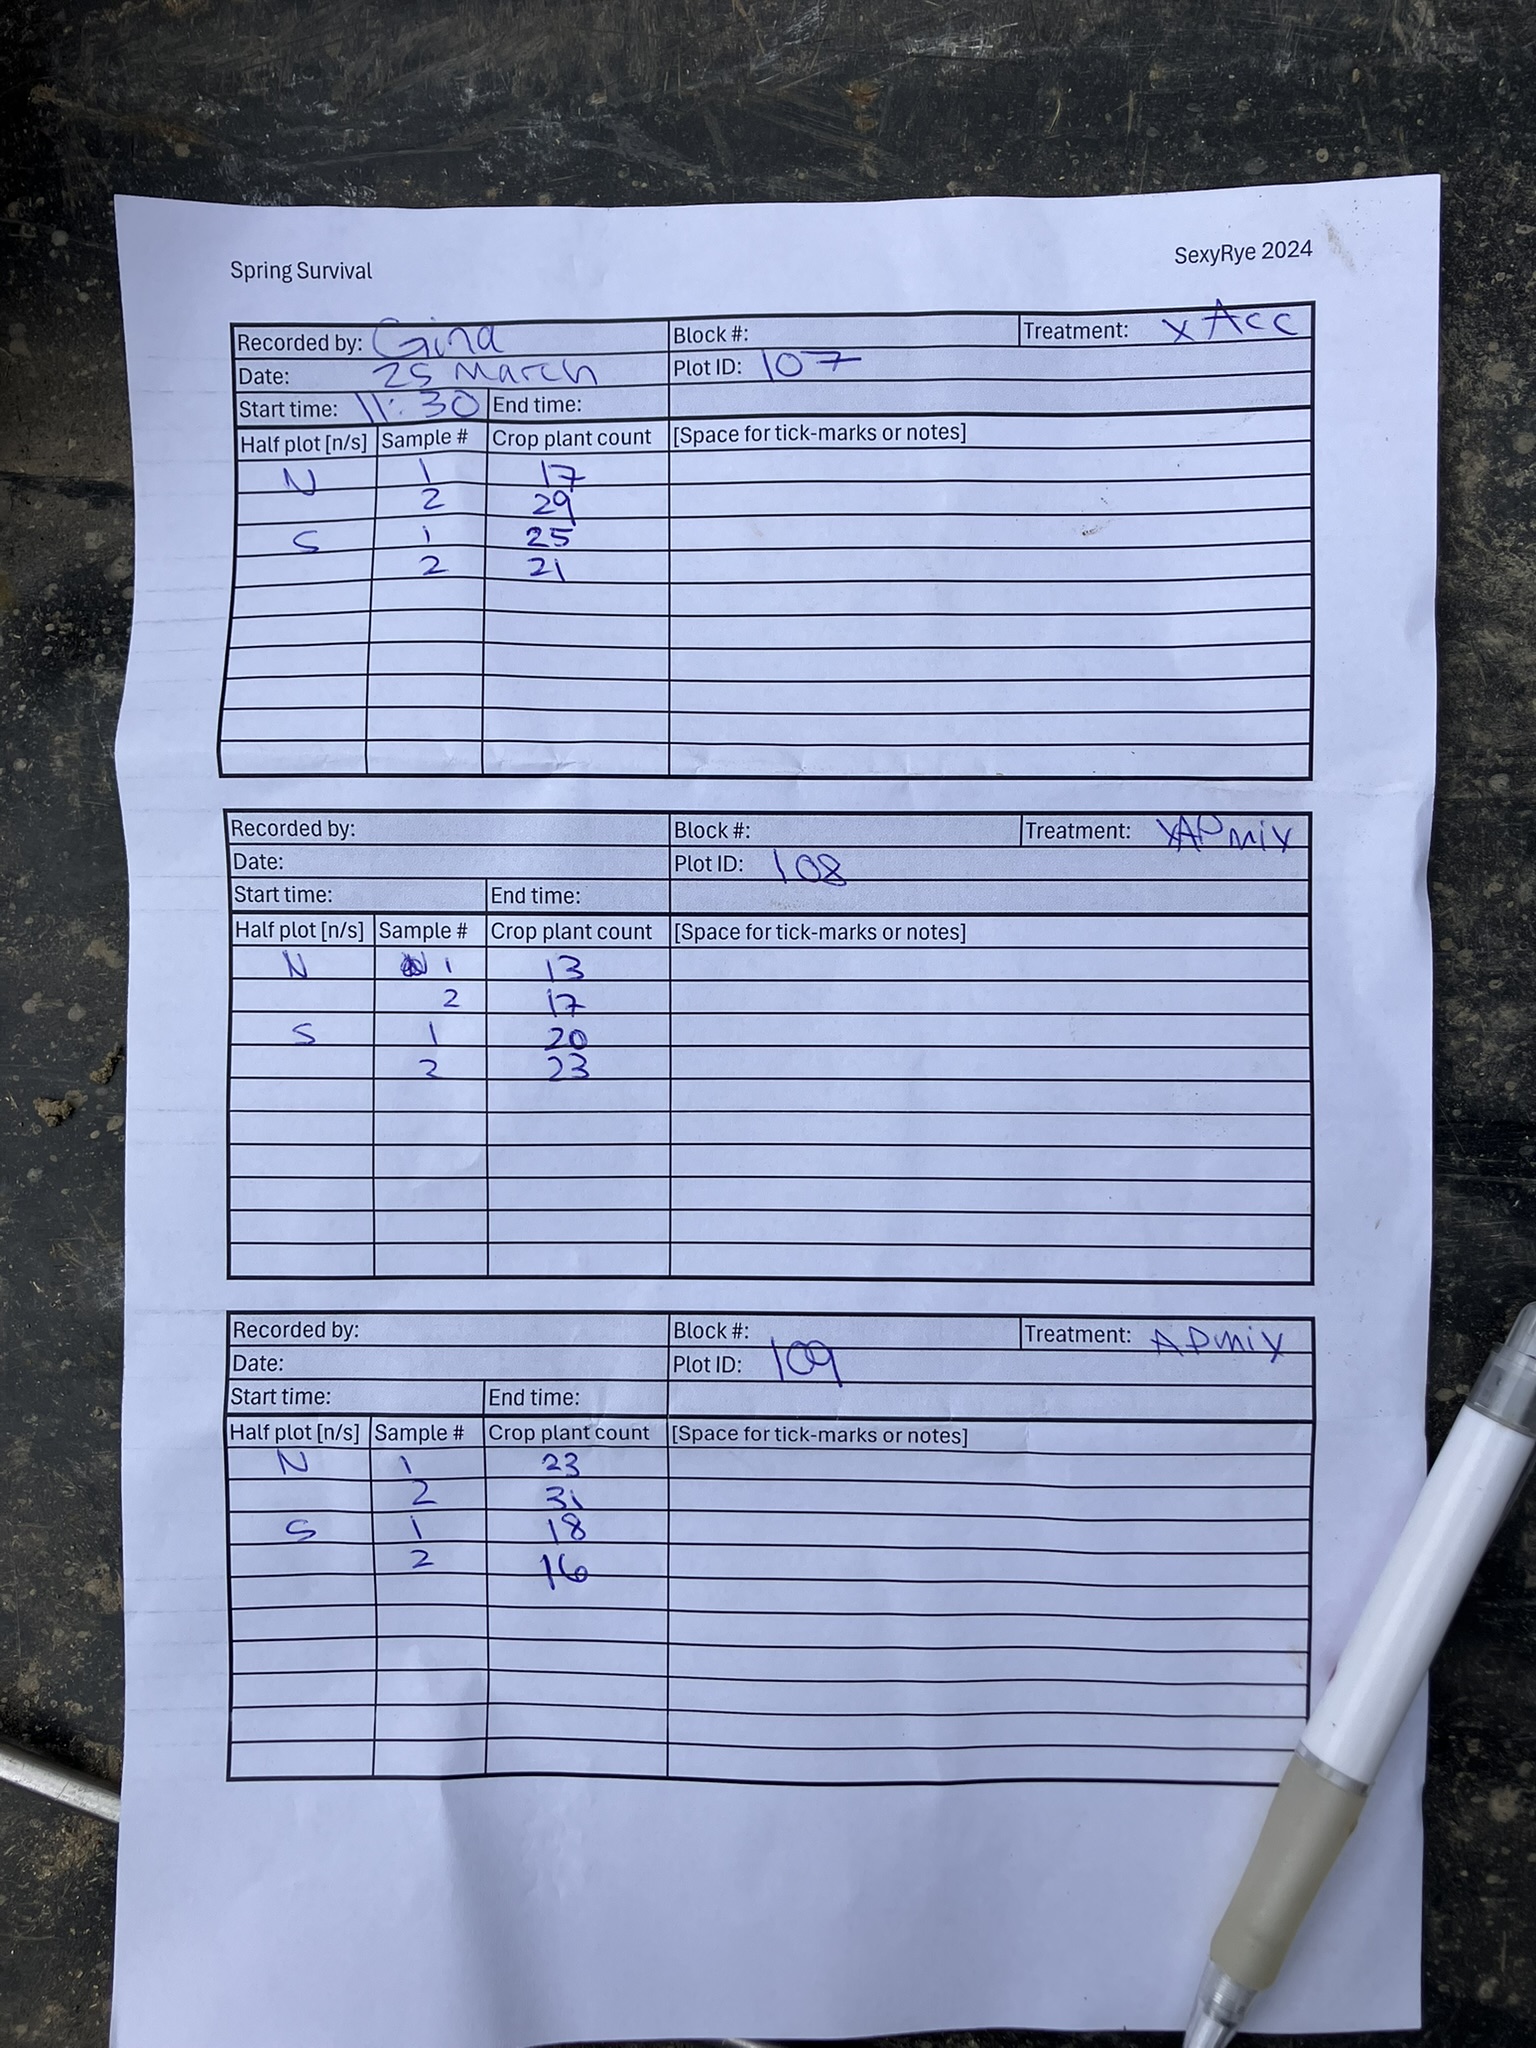 Spring Survival SexyRye 2024
Recorded by: Gina Block #: Treatment: xAcc
Date: 25 March Plot ID: 107
Start time: 11:30 End time:
Half plot [n/s] Sample # Crop plant count [Space for tick-marks or notes]
N 1 17
2 29
S 1 25
2 21
Recorded by: Block #: Treatment: XAPmix
Date: Plot ID: 108
Start time: End time:
Half plot [n/s] Sample # Crop plant count [Space for tick-marks or notes]
N 1 13
2 17
S 1 20
2 23
Recorded by: Block #: Treatment: APmix
Date: Plot ID: 109
Start time: End time:
Half plot [n/s] Sample # Crop plant count [Space for tick-marks or notes]
N 1 23
2 31
S 1 18
2 16